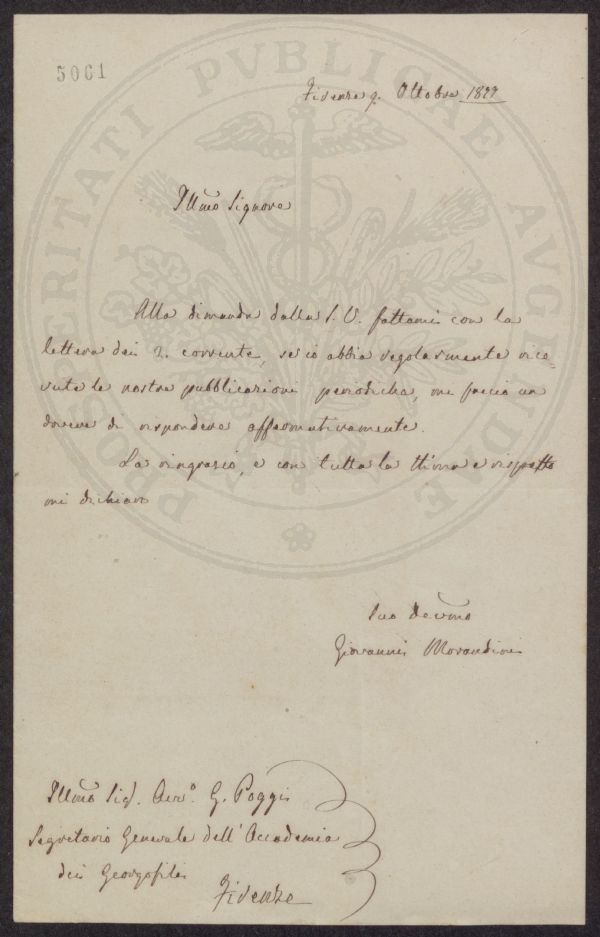 5061
PROSPERITATI PVBLICAE AVGENDAE
Firenze 9. Ottobre 1877
Illmo Signore
Alla dimanda dalla S. V. fattami con la
lettera dei 2. corrente, se io abbia regolarmente rice-
vute le nostre pubblicazioni periodiche, mi faccio un
dovere di rispondere affermativamente.
La ringrazio, e con tutta la stima e rispetto
mi dichiaro
Suo Devmo
Giovanni Morandini
Illmo Sig. G. Poggi
Segretario Generale dell'Accademia
dei Georgofili
Firenze